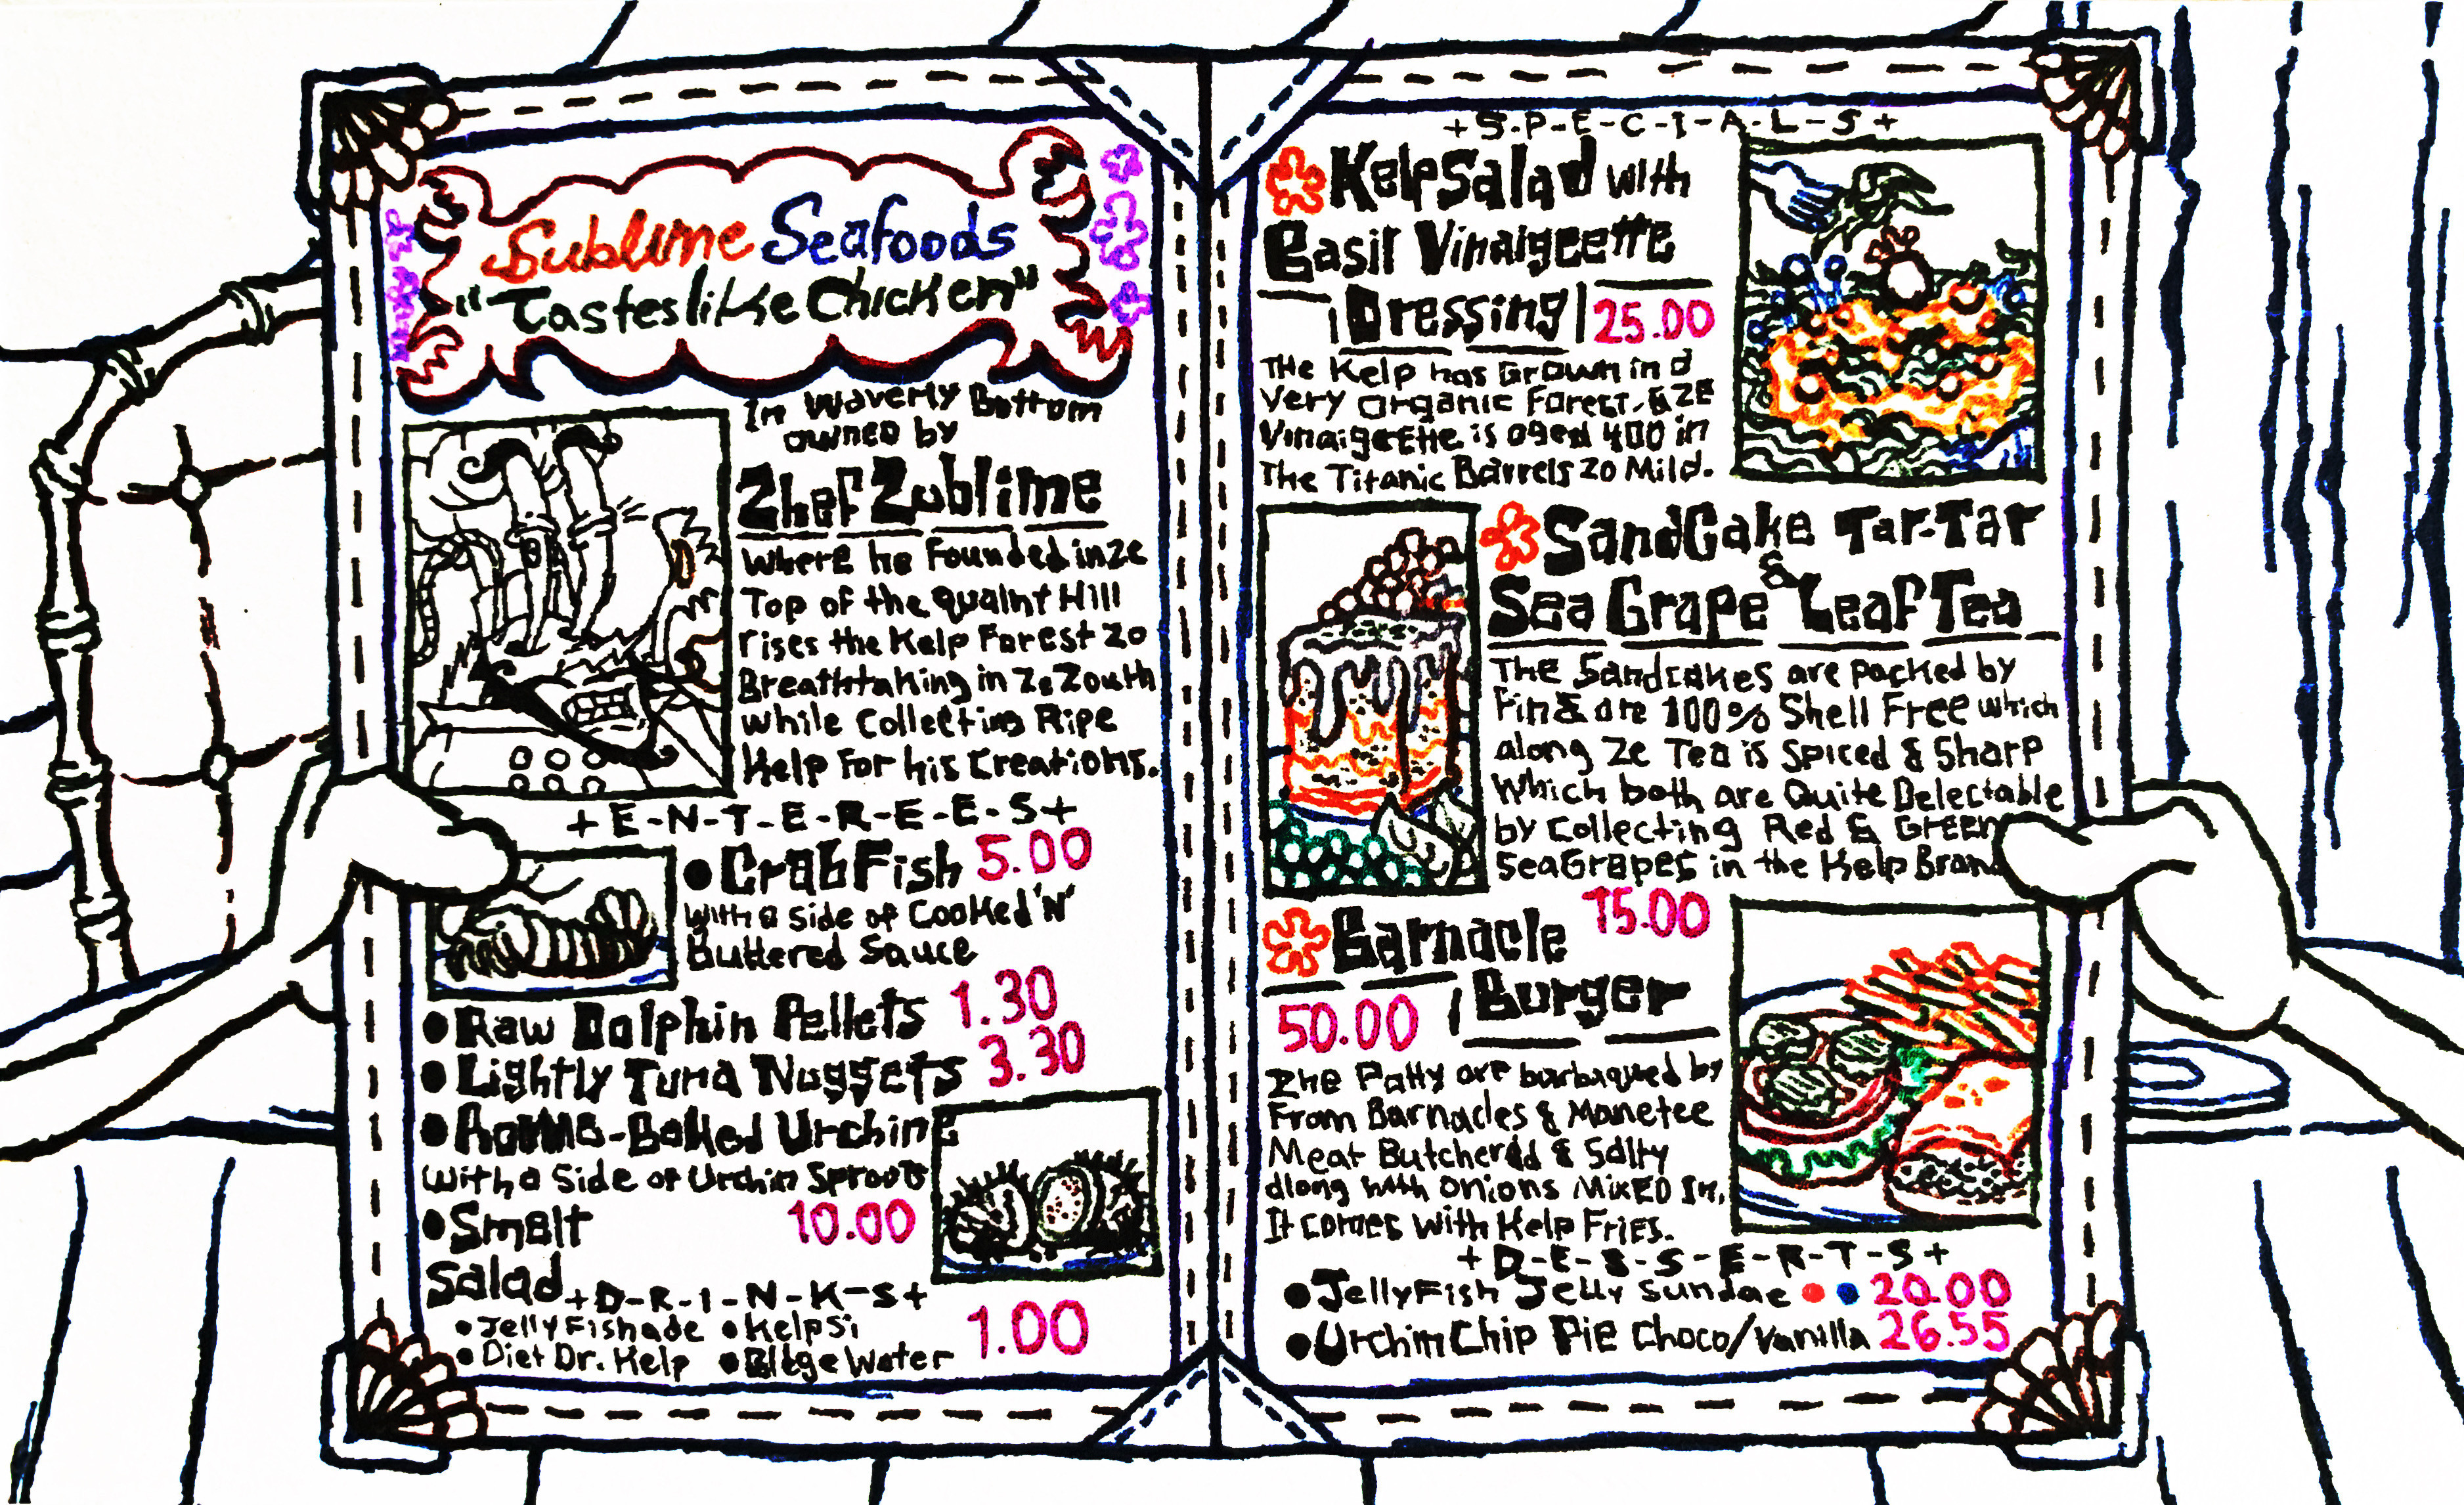 Sublime Seafoods
"Tastes like Chicken"
In Waverly Bottom
owned by
Zhef Zublime
Where he Founded in ze
Top of the quaint Hill
rises the Kelp Forest zo
Breathtaking in Ze Zouth
While Collecting Ripe
Kelp For his Creations.
+E-N-T-E-R-E-E-S+
•CrabFish 5.00
With a side of Cooked 'N'
Buttered Sauce
•Raw Dolphin Pellets 1.30
•Lightly Tuna Nuggets 3.30
Urchins
With a Side of Urchin Sprouts
•Smelt 10.00
Salad
+D-R-I-N-K-S+
•JellyFishade •KelpSi
•Diet Dr. Kelp •Bilge Water
1.00
+S-P-E-C-I-A-L-S+
KelpSalad with
Basil Vinaigeette
Dressing 25.00
The Kelp has Grown in a
Very Organic Forest, & ZE
VinaigeEtte is aged 400 in
The Titanic Barrels zo Mild.
SandCake Tar-Tar
&
Sea Grape Leaf Tea
The Sandcakes are packed by
Fin & are 100% Shell Free which
along Ze Tea is Spiced & Sharp
Which both are Quite Delectable
by Collecting Red & Green
SeaGrapes in the Kelp
75.00
Barnacle
Burger
50.00
The Patty are barbaqued by
From Barnacles & Manetee
Meat Butchered & Salty
along with Onions MixED In,
It comes with Kelp Fries.
+D-E-S-S-E-R-T-S+
•JellyFish Jelly Sundae 20.00
•UrchinChip Pie Choco/Vanilla 26.55